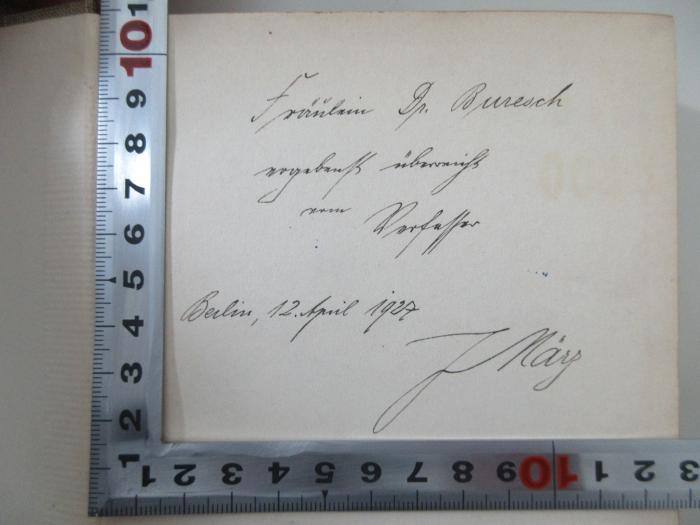 Fräulein Dr. Buresch
ergebenst überreicht
vom Verfasser
Berlin, 12. April 1927
J März
10 9 8 7 6 5 4 3 2 1
1 2 3 4 5 6 7 8 9 10 1 2 3